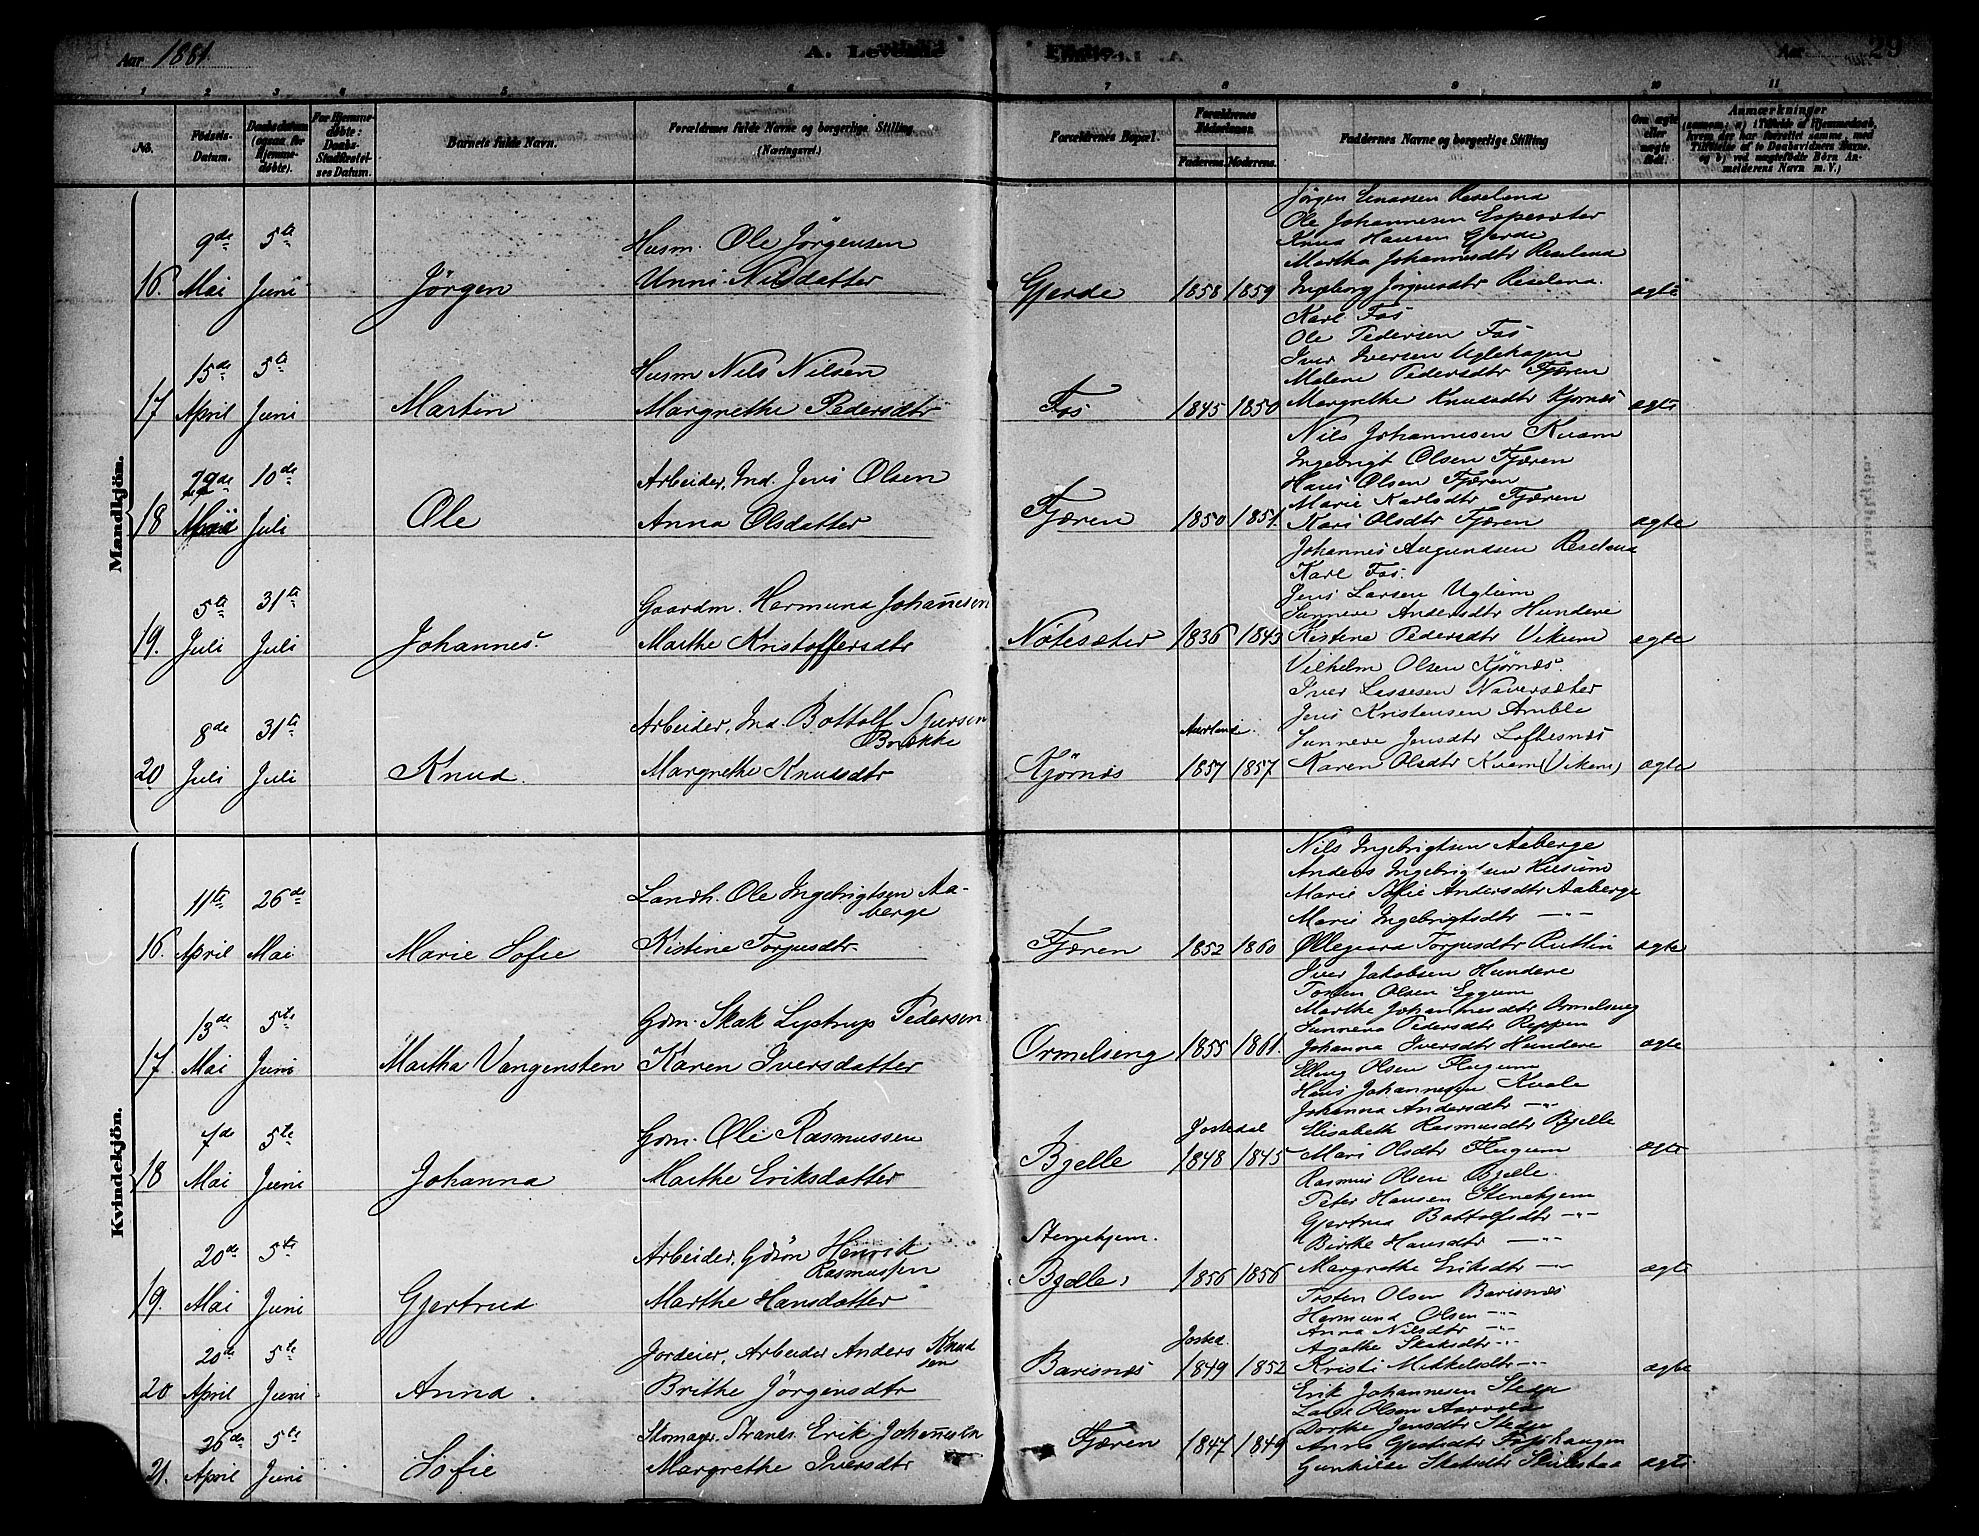 Aar 1881.
A. Levende
Fødte.
Aar
29
1 2 3 4 5 6 7 8 9 10 11
No.
Fødsels-Datum.
Daabsdatum (ogsaa for Hjemmedøbte).
For Hjemmedøbte: Daabs-Stadfæstelses Datum.
Barnets fulde Navn.
Forældrenes fulde Navne og borgerlige Stilling (Næringsvei.)
Forældrenes Bopæl.
Forældrenes Fødselsaar.
Faderens. Moderens.
Faddernes Navne og borgerlige Stilling
Om ægte eller uægte født.
Anmærkninger
Mandkjøn.
Jörgen Reseland
Ole Johannesen Esperæter
Knud Hansen Gjerde
Martha Johannesdtr Reseland
9de 5te Husm. Ole Jörgensen
16. Mai Juni Jörgen Unni Nilsdatter Gjerde 1858 1859 Ingeborg Jörgensdtr Reseland. ægte
Karl Fos
Ole Pedersen Fos
Iver Iversen Uglehagen
Malene Pedersdtr Fjæren
15de 5te Husm Nils Nilsen
17 April Juni Martin Margrethe Pedersdtr Fos 1845 1850 Margrethe Knudsdtr Kjörnæs ægte
Nils Johannesen Kvam
Ingebrigt Olsen Fjæren
Hans Olsen Fjæren
Marie Karlsdtr Fjæren
29de 10de Arbeider, Ind. Jens Olsen
18 Juli Ole Anna Olsdatter Fjæren 1850 1851. Kari Olsdtr Fjæren ægte
Johannes Aagundsen Reseland
Karl Fos.
Jens Larsen Uglum
Sunneve Andersdtr Hundere
5te 31te Gaardm. Hermund Johannesen
19. Juli Juli Johannes. Marthe Kristoffersdtr Nötesæter 1836 1843 Kistine Pedersdtr Vikum ægte
Vilhelm Olsen Kjörnæs.
Iver Lassesen Naversæter
Jens Kristensen Amble
Sunneve Jensdtr Loftesnæs
8de 31te Arbeider, Ind. Bottolf Sjursen Brække Aurland.
20 Juli Juli Knud. Margrethe Knudsdtr Kjörnæs 1857 1857 Karen Olsdtr Kvam (Vikum) ægte
Kvindekjön.
Nils Ingebrigtsen Aaberge
Anders Ingebrigtsen Husum
Marie Sofie Andersdtr Aaberge
Marie Ingebrigtsdtr —"—
11te 26de Landh. Ole Ingebrigtsen Aaberge
16. April Mai Marie Sofie Kistine Torgersdtr Fjæren 1852 1860 Øllegaard Torgersdtr Ruttlin ægte
Iver Jakobsen Hundere
Tosten Olsen Eggum
Marthe Johannesdtr Ormelseng
Sunneva Pedersdtr Reppen
13de 5te Gdm. Skak Lystrup Pedersen
17. Mai Juni Martha Vangensten Karen Iversdatter Ormelseng 1855 1861. Johanna Iversdtr Hundere ægte
Elling Olsen Flugum
Hans Johannesen Kvale
Johanna Andersdtr —"—
Elisabeth Rasmusdtr Bjelle
7de 5te Gdm. Ole Rasmussen Jostedal
18 Mai Juni Johanna Marthe Eriksdatter Bjelle 1848 1845 Mari Olsdtr Flugum ægte
Rasmus Olsen Bjelle.
Peter Hansen Stenehjem
Gjertrud Bottolfsdtr —"—
Birthe Hansdtr —"—
20de 5te Arbeider, Gdsön Henrik Rasmussen Stenehjem.
19. Mai Juni Gjertrud Marthe Hansdatter Bjelle, 1856 1856 Margrethe Eriksdtr —"— ægte
Tosten Olsen Barsnæs
Hermund Olsen —"—
Anna Nilsdtr —"—
Agathe Skaksdtr —"—
20de 5te Jordeier, Arbeider Anders Knudsen Josted.
20 April Juni Anna. Brithe Jörgensdtr Barsnæs 1849 1852 Kristi Mikkelsdtr —"— ægte
Erik Johannesen Stedje
Lasse Olsen Aaroold
Dorthe Jensdtr Stedje
26de 5te Skomager, Strands. Erik Johannesen
21. April Juni Sofie Margrethe Iversdtr Fjæren 1847 1849 Gunhilde Skaksdtr ægte